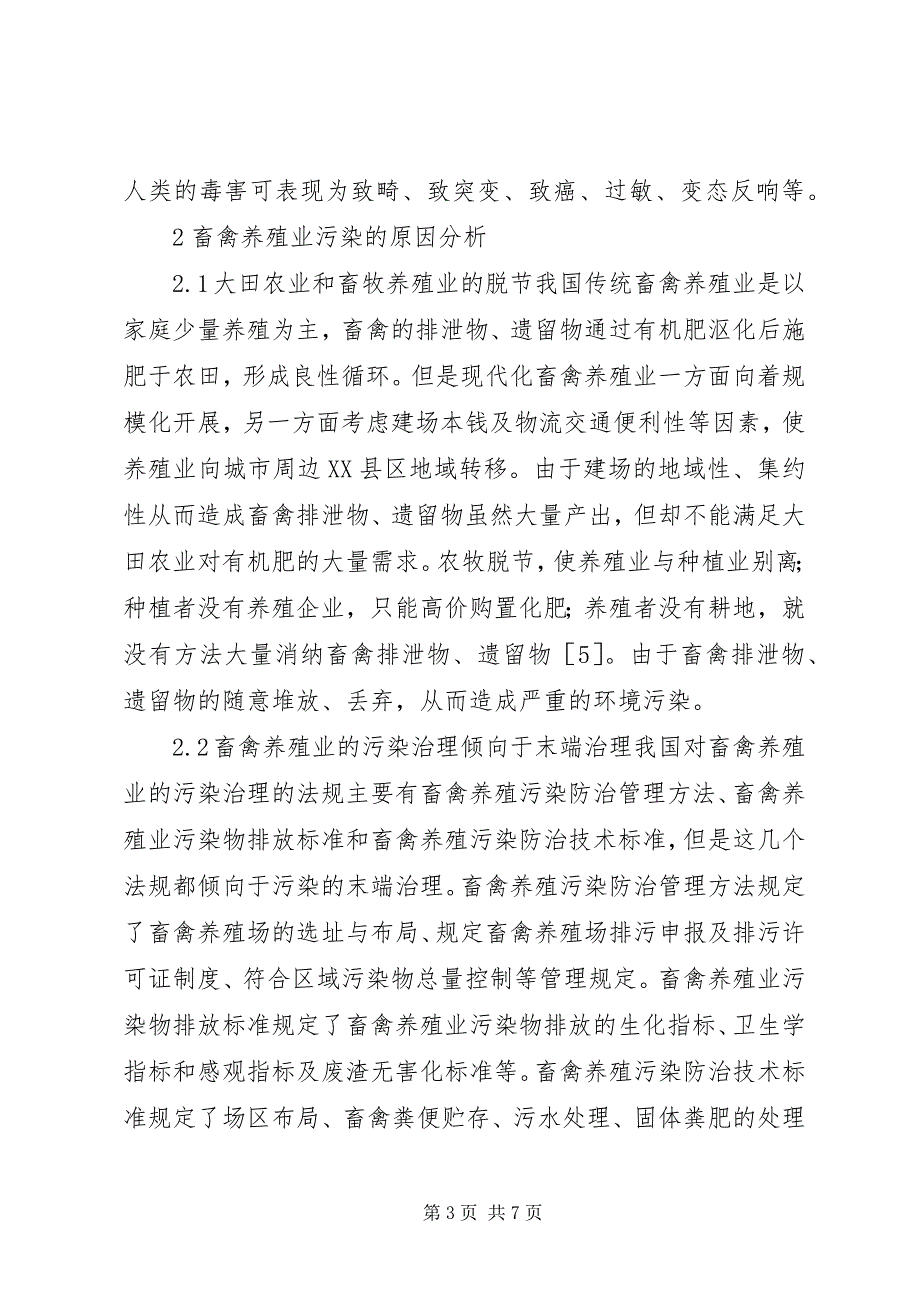 人类的毒害可表现为致畸、致突变、致癌、过敏、变态反响等。
2 畜禽养殖业污染的原因分析
2.1 大田农业和畜牧养殖业的脱节我国传统畜禽养殖业是以
家庭少量养殖为主，畜禽的排泄物、遗留物通过有机肥沤化后施
肥于农田，形成良性循环。但是现代化畜禽养殖业一方面向着规
模化开展，另一方面考虑建场本钱及物流交通便利性等因素，使
养殖业向城市周边 XX 县区地域转移。由于建场的地域性、集约
性从而造成畜禽排泄物、遗留物虽然大量产出，但却不能满足大
田农业对有机肥的大量需求。农牧脱节，使养殖业与种植业别离；
种植者没有养殖企业，只能高价购置化肥；养殖者没有耕地，就
没有方法大量消纳畜禽排泄物、遗留物［5］。由于畜禽排泄物、
遗留物的随意堆放、丢弃，从而造成严重的环境污染。
2.2 畜禽养殖业的污染治理倾向于末端治理我国对畜禽养殖
业的污染治理的法规主要有畜禽养殖污染防治管理方法、畜禽养
殖业污染物排放标准和畜禽养殖污染防治技术标准，但是这几个
法规都倾向于污染的末端治理。畜禽养殖污染防治管理方法规定
了畜禽养殖场的选址与布局、规定畜禽养殖场排污申报及排污许
可证制度、符合区域污染物总量控制等管理规定。畜禽养殖业污
染物排放标准规定了畜禽养殖业污染物排放的生化指标、卫生学
指标和感观指标及废渣无害化标准等。畜禽养殖污染防治技术标
准规定了场区布局、畜禽粪便贮存、污水处理、固体粪肥的处理
第 3 页 共 7 页